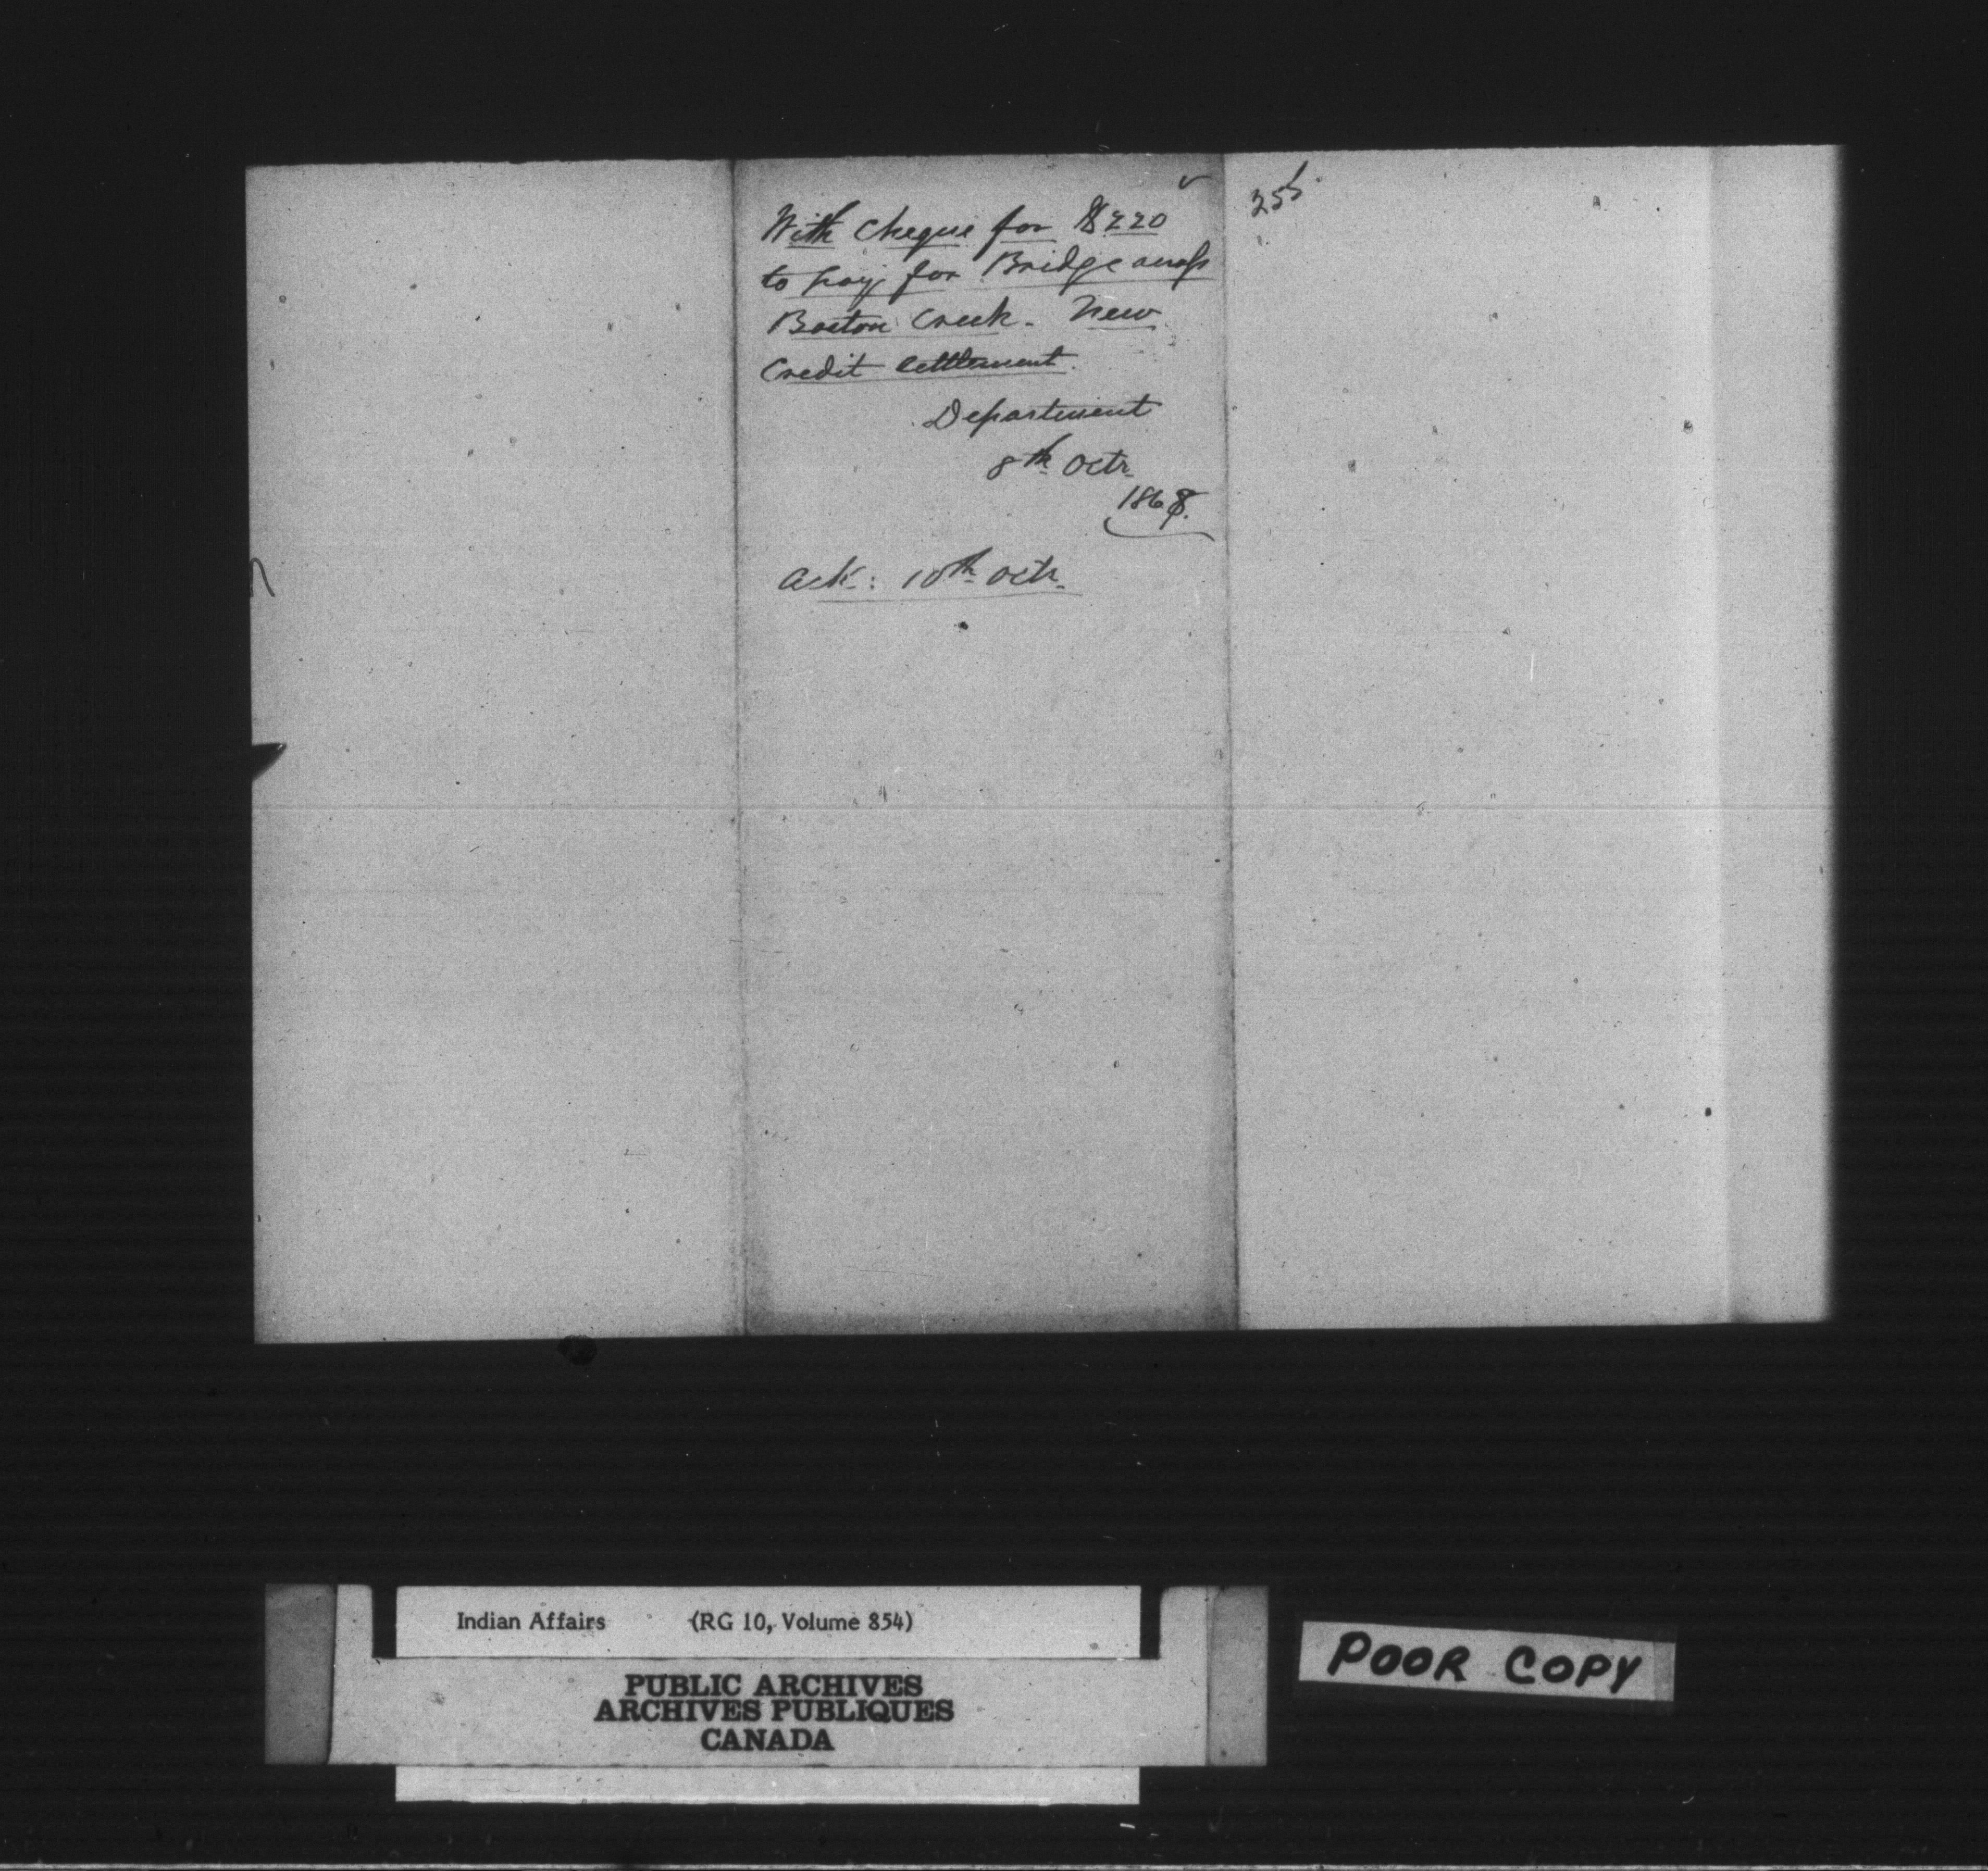 With Cheque for $220
to pay for Bridge across
Boston Creek - New
Credit Settlement.
Department
8th Octr.
1868.
Ack: 10th Octr.
Indian Affairs (RG 10, Volume 854)
PUBLIC ARCHIVES
ARCHIVES PUBLIQUES
CANADA
POOR COPY